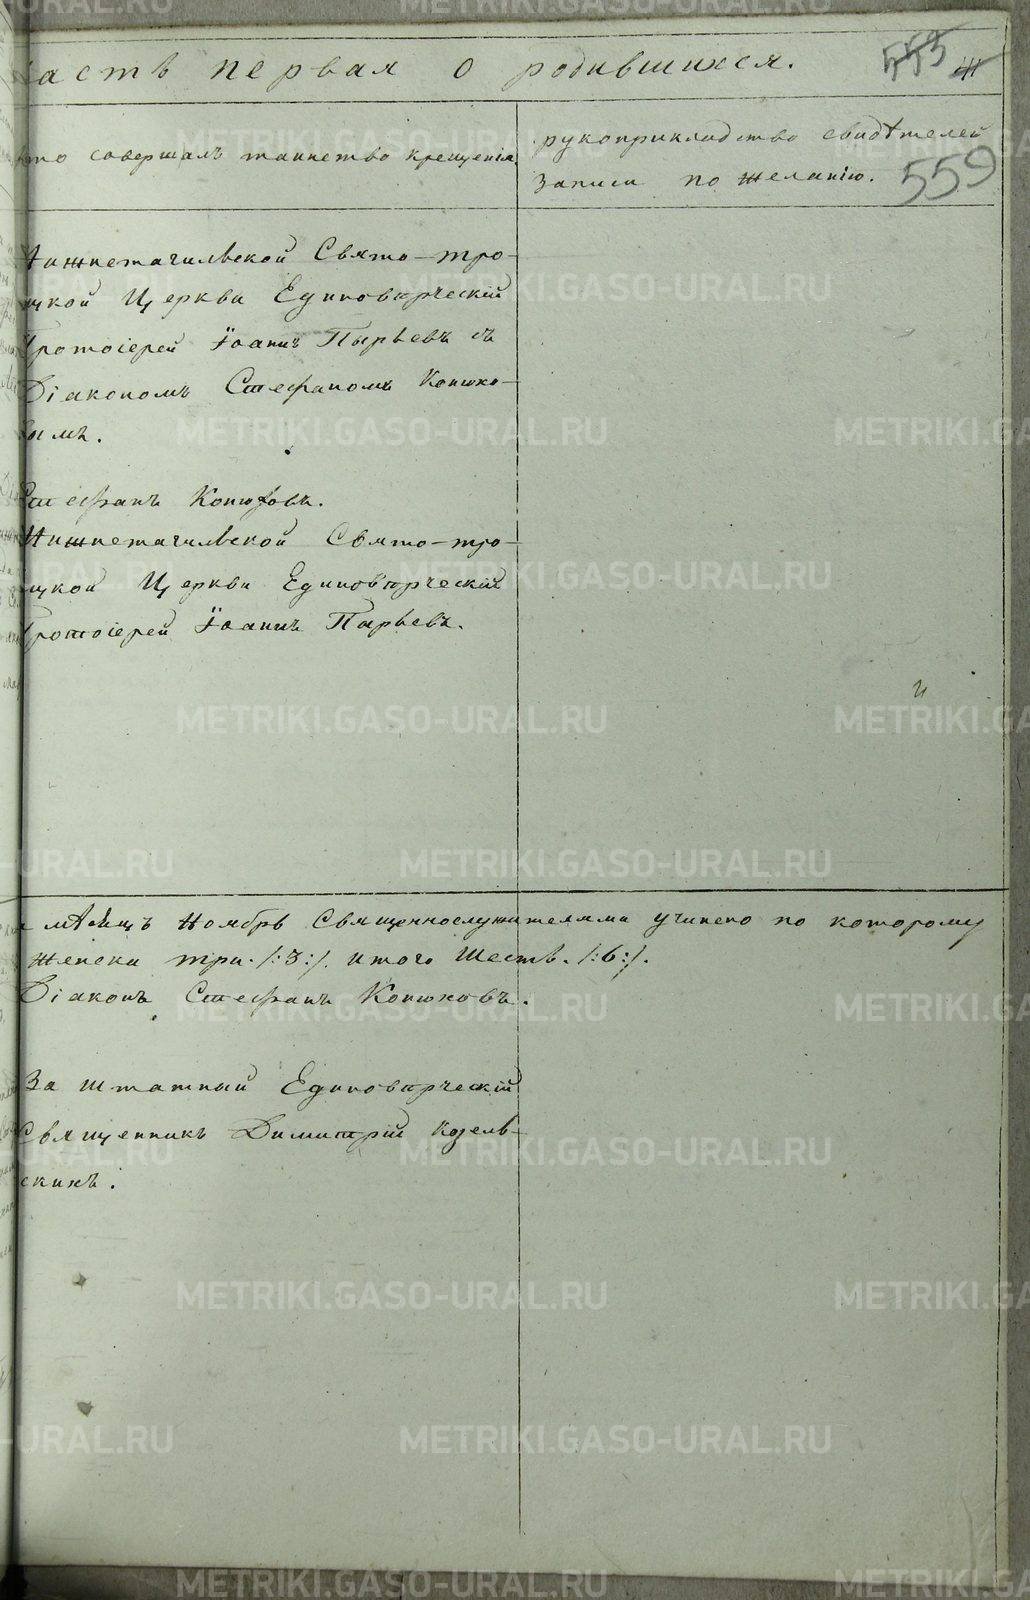 Часть первая о родившихся.
555
41
Кто совершалъ таинство крещенія.
рукоприкладство свидѣтелей
записи по желанію.
559
Нижнетагильской Свято-тро-
ицкой Церкви Единовѣрческій
Протоіерей Іоаннъ Пырьевъ съ
Діакономъ Стефаномъ Конюхо-
вымъ.
Стефанъ Конюховъ.
Нижнетагильской Свято-тро-
ицкой Церкви Единовѣрческій
Протоіерей Іоаннъ Пырьевъ.
мѣсяцъ Ноябрь Священнослужителями учинено по которому
женска три /:3:/. итого Шесть. /:6:/.
Діаконъ Стефанъ Конюховъ.
За штатный Единовѣрческій
Священникъ Димитрій Козель-
скихъ.
METRIKI.GASO-URAL.RU